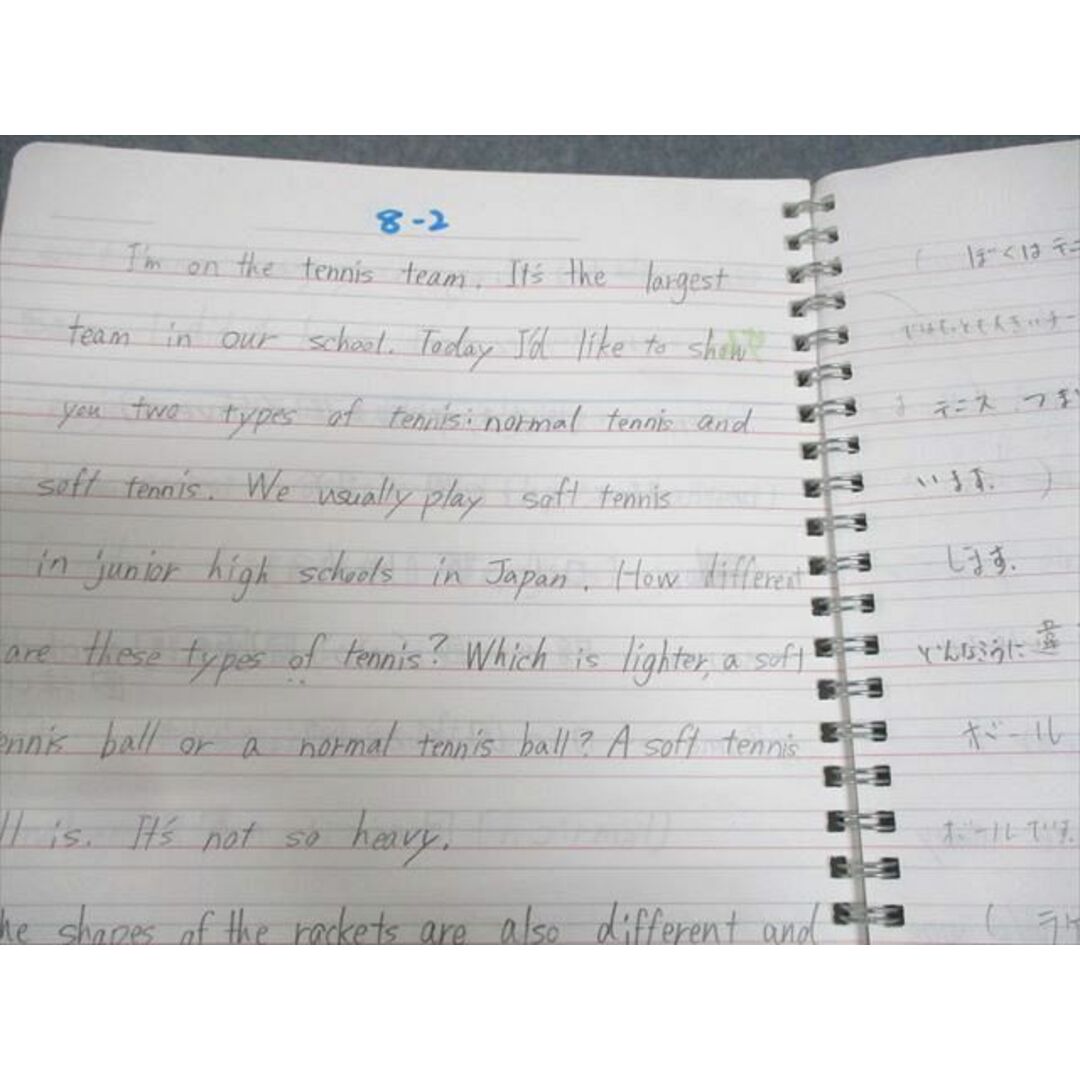 8-2
I'm on the tennis team. It's the largest
team in our school. Today I'd like to show
you two types of tennis: normal tennis and
soft tennis. We usually play soft tennis
in junior high schools in Japan. How different
are these types of tennis? Which is lighter, a soft
ennis ball or a normal tennis ball? A soft tennis
ll is. It's not so heavy.
he shapes of the rackets are also different and
( ぼくは テニ
テニス つま
います。 )
します。
どんなふうに 違
ボール
ボールです。
( ラケ